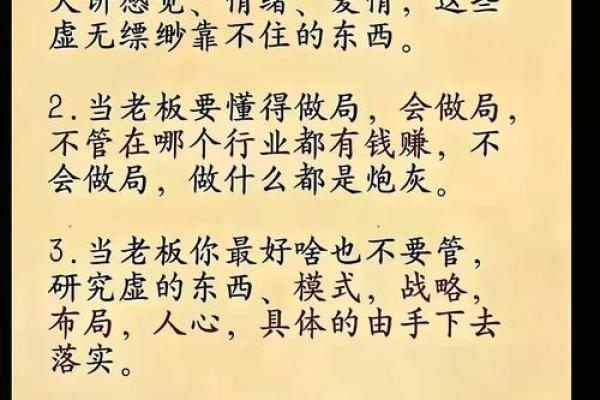 人讲感觉、情绪、爱情，这些
虚无缥缈靠不住的东西。
2.当老板要懂得做局，会做局，
不管在哪个行业都有钱赚，不
会做局，做什么都是炮灰。
3.当老板你最好啥也不要管，
研究虚的东西、模式，战略，
布局，人心，具体的由手下去
落实。